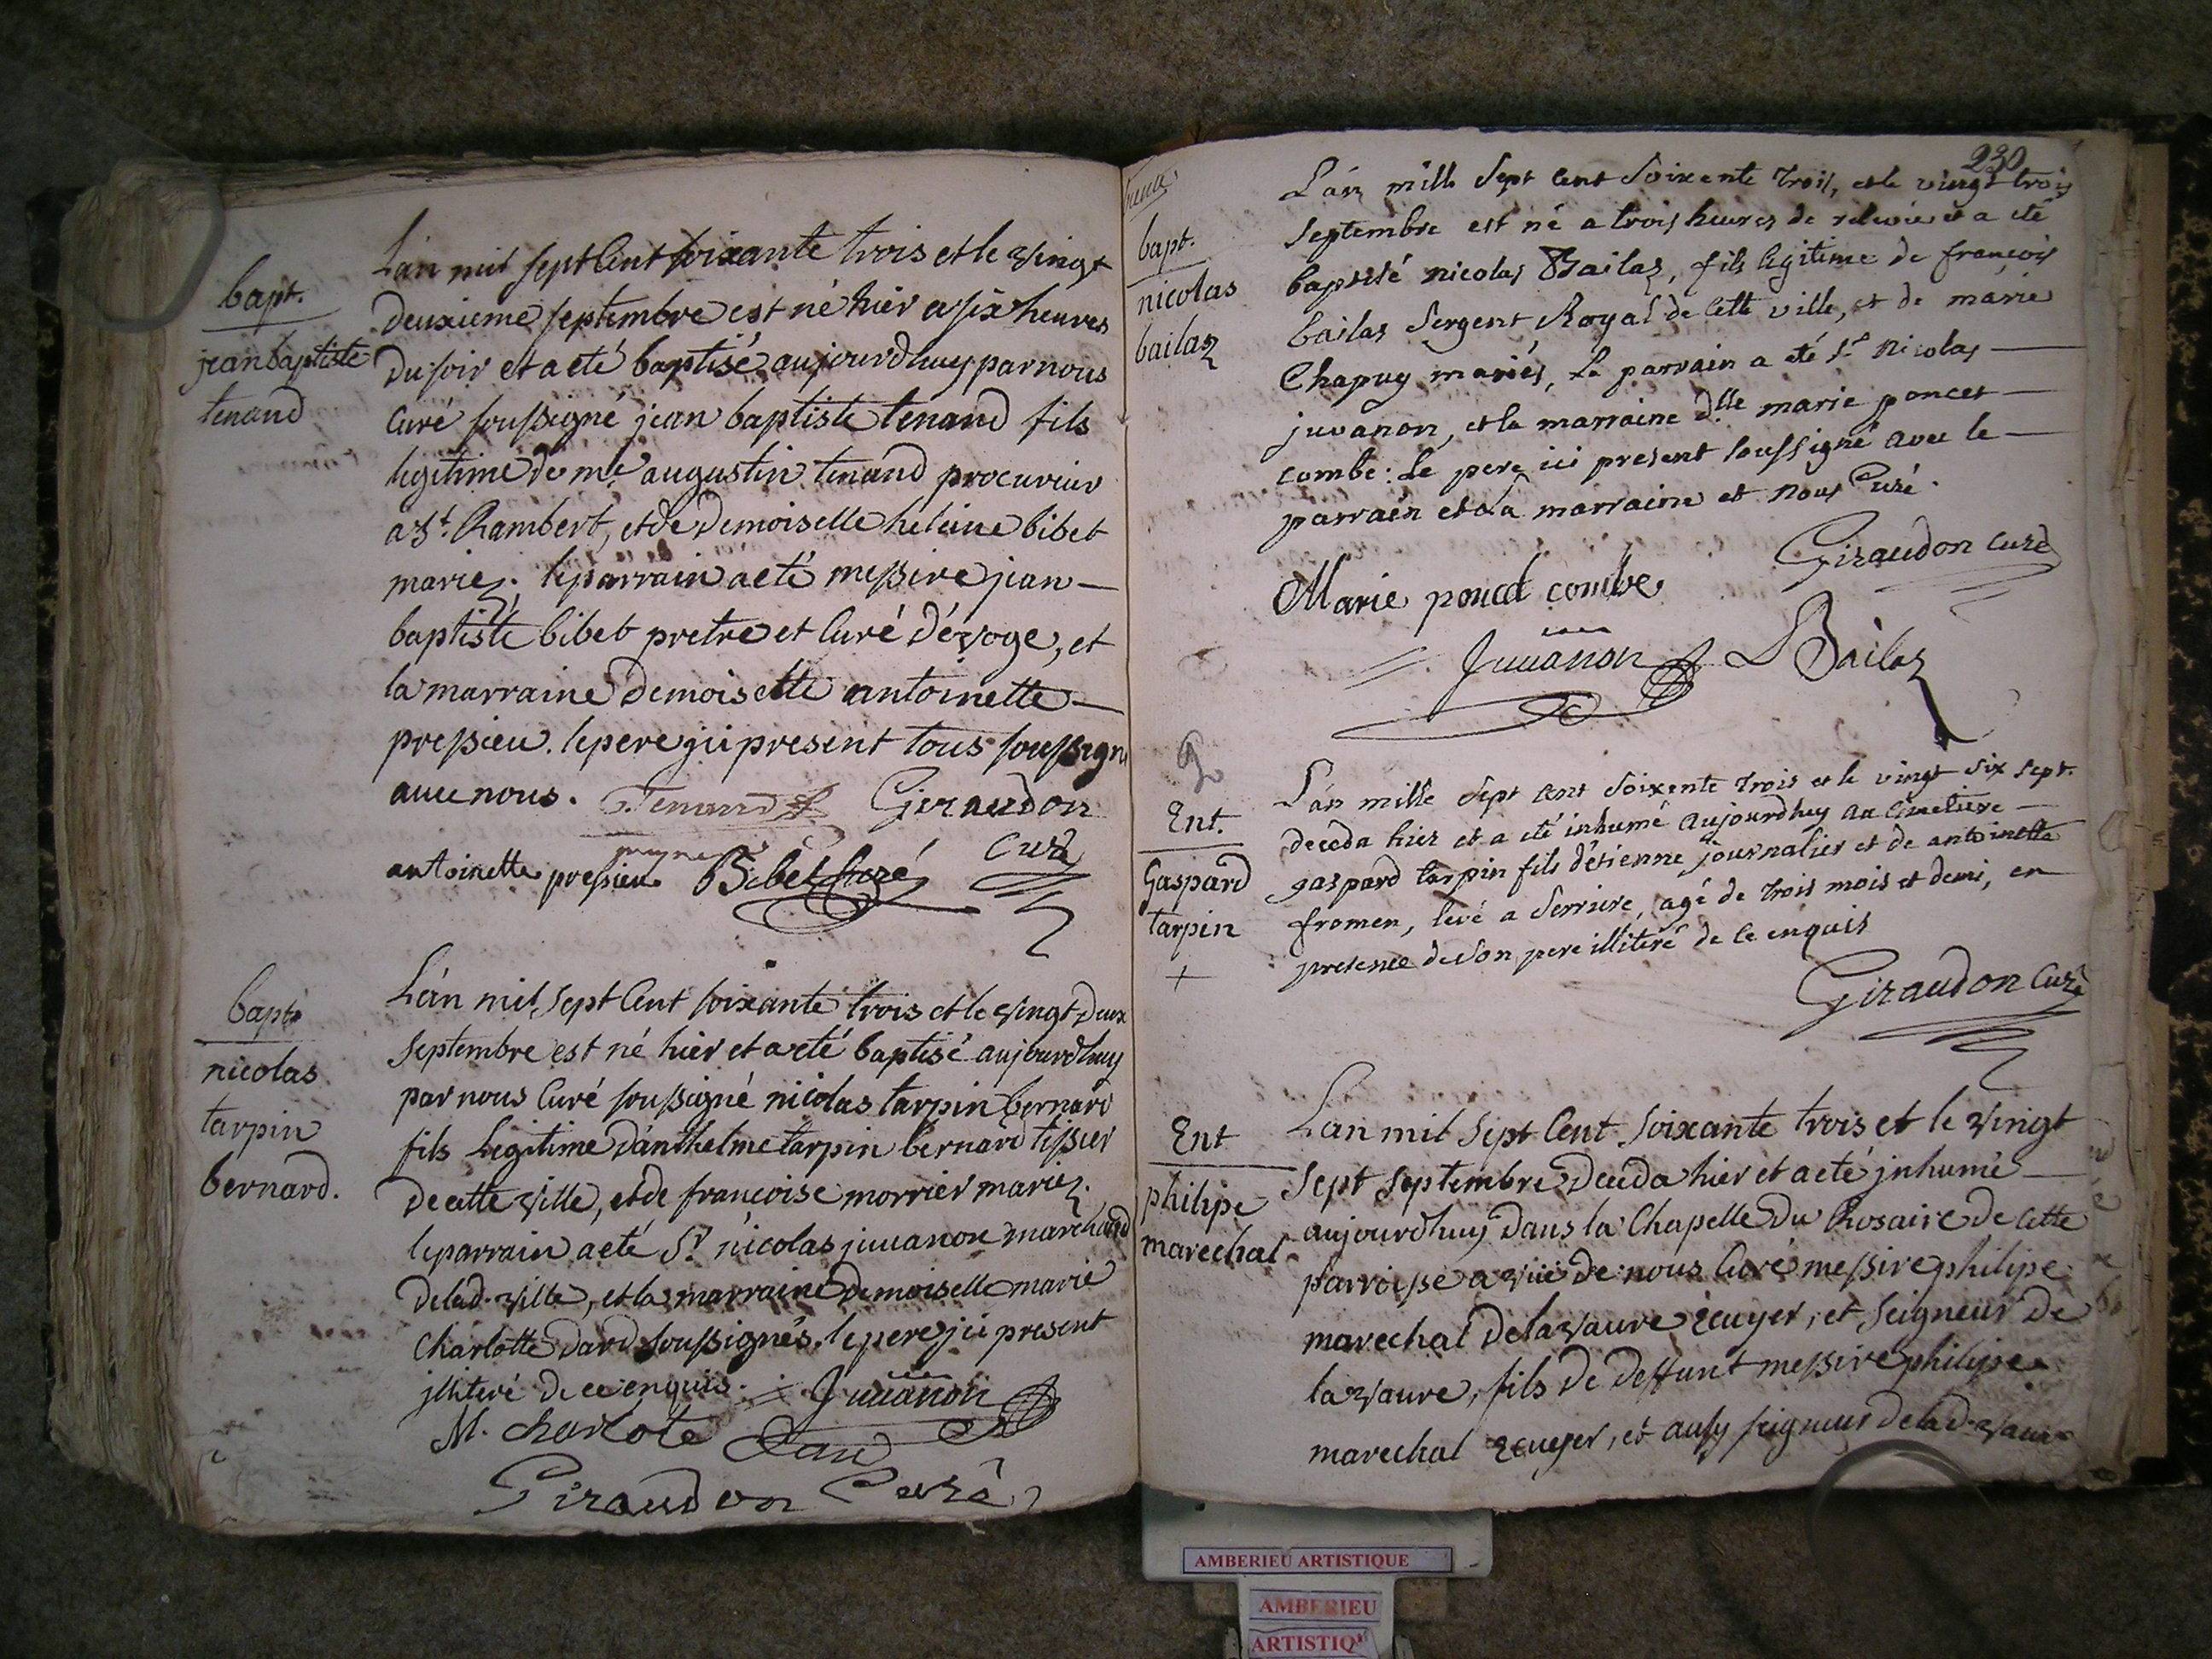 bapt.
jean baptiste
tenand
L'an mil sept cent soixante trois et le vingt
deuxieme septembre est né hier a six heures
du soir et a eté baptisé aujourdhuy par nous
curé soussigné jean baptiste tenand fils
legitime de me augustin tenand procureur
a St. Rambert, et de demoiselle heleine bibet
mariez. le parrain a eté messire jean
baptiste bibet pretre et curé d'évoge, et
la marraine demoiselle antoinette
pressieu. le pere jci present tous soussign
avec nous. Tenand Giraudon
curé
antoinette pressieu Bibet curé
bapt.
nicolas
tarpin
bernard.
L'an mil sept cent soixante trois et le vingt deux
septembre est né hier et a eté baptisé aujourdhuy
par nous curé soussigné nicolas tarpin bernard
fils legitime d'anthelme tarpin bernard tissier
de cette ville, et de francoise morrier mariez.
le parrain a eté Sr. nicolas juuanon marchand
de lad. ville, et la marraine demoiselle marie
charlotte dard soussignés. le pere jci present
jlliteré de ce enquis. Juuanon
M. charlote Dard
Giraudon Curé
230
bapt.
nicolas
bailaz
L'an mille sept cent soixente trois, et le vingt trois
septembre est né a trois heures de relevée et a eté
baptisé nicolas Bailaz, fils legitime de françois
bailaz sergent Royal de cette ville, et de marie
Chapuy mariés, Le parrain a été Sr. nicolas
juvanon, et la marraine dlle marie poncet
combe: Le pere ici present soussigné avec le
parrain et la marraine et nous Curé.
Giraudon curé
Marie poncet combe
Juuanon Bailaz
Ent.
Gaspard
tarpin
+
L'an mille sept cent soixente trois et le vingt six sept.
deceda hier et a eté inhumé aujourdhuy au cimetiere
gaspard tarpin fils d'étienne journalier et de antoinette
fromen, levé a Serriere, agé de trois mois et demi, en
presence de son pere illiteré de ce enquis
Giraudon Curé
Ent
philipe
marechal
L'an mil sept cent soixante trois et le vingt
sept septembre deceda hier et a eté jnhumé
aujourdhuy dans la chapelle du Rosaire de cette
parroisse a vüe de nous curé messire philipe
marechal de la vaure ecuyer, et seigneur de
la vaure, fils de deffunt messire philipe
marechal ecuyer, et aussy seigneur de lad. vaure
AMBERIEU ARTISTIQUE
AMBERIEU
ARTISTIQ